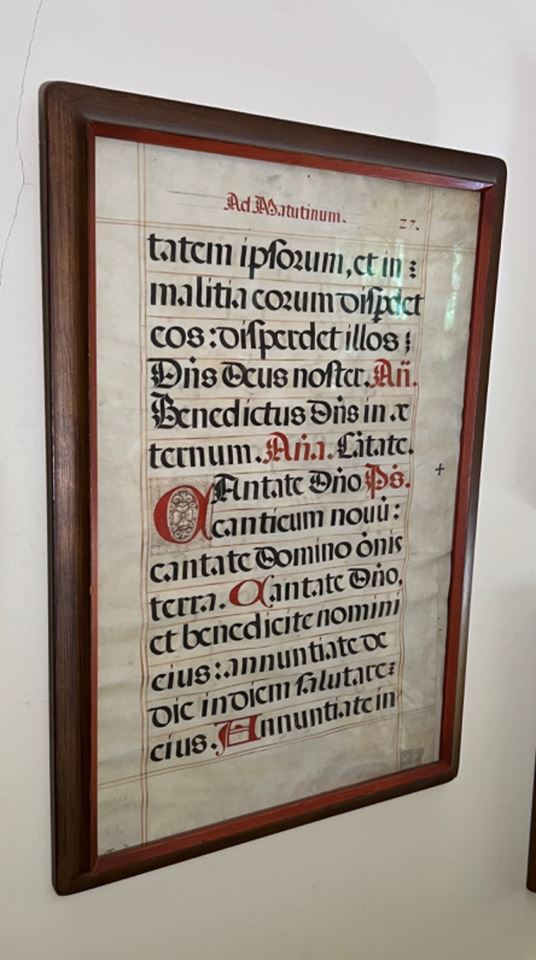 Ad Matutinum.
27.
tatem ipsorum, et in
malitia eorum disperdet
eos: disperdet illos
Dñs Deus noster. Añ.
Benedictus Dñs in æ
ternum. Aña. Cãtate.
CAntate Dño Ps.
canticum novũ:
cantate Domino õnis
terra. Cantate Dño,
et benedicite nomini
eius: annuntiate de
die in diem salutare
eius. Annuntiate in